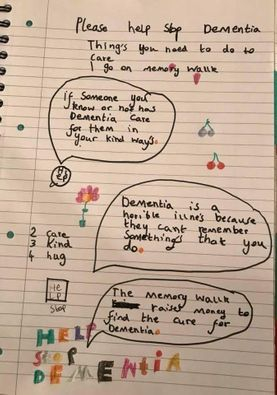 Please help stop Dementia
Thing's you need to do to
care
1 go on memory Wallk
if someone you
know or not has
Dementia Care
for them in
your kind way's.
Dementia is a
horible illne's because
they cant remember
something's that you
do.
2 care
3 kind
4 hug
HE
LP
Stop
The memory Wallk
raises money to
find the cure for
Dementia.
HELP
StOP
DEMENTIA